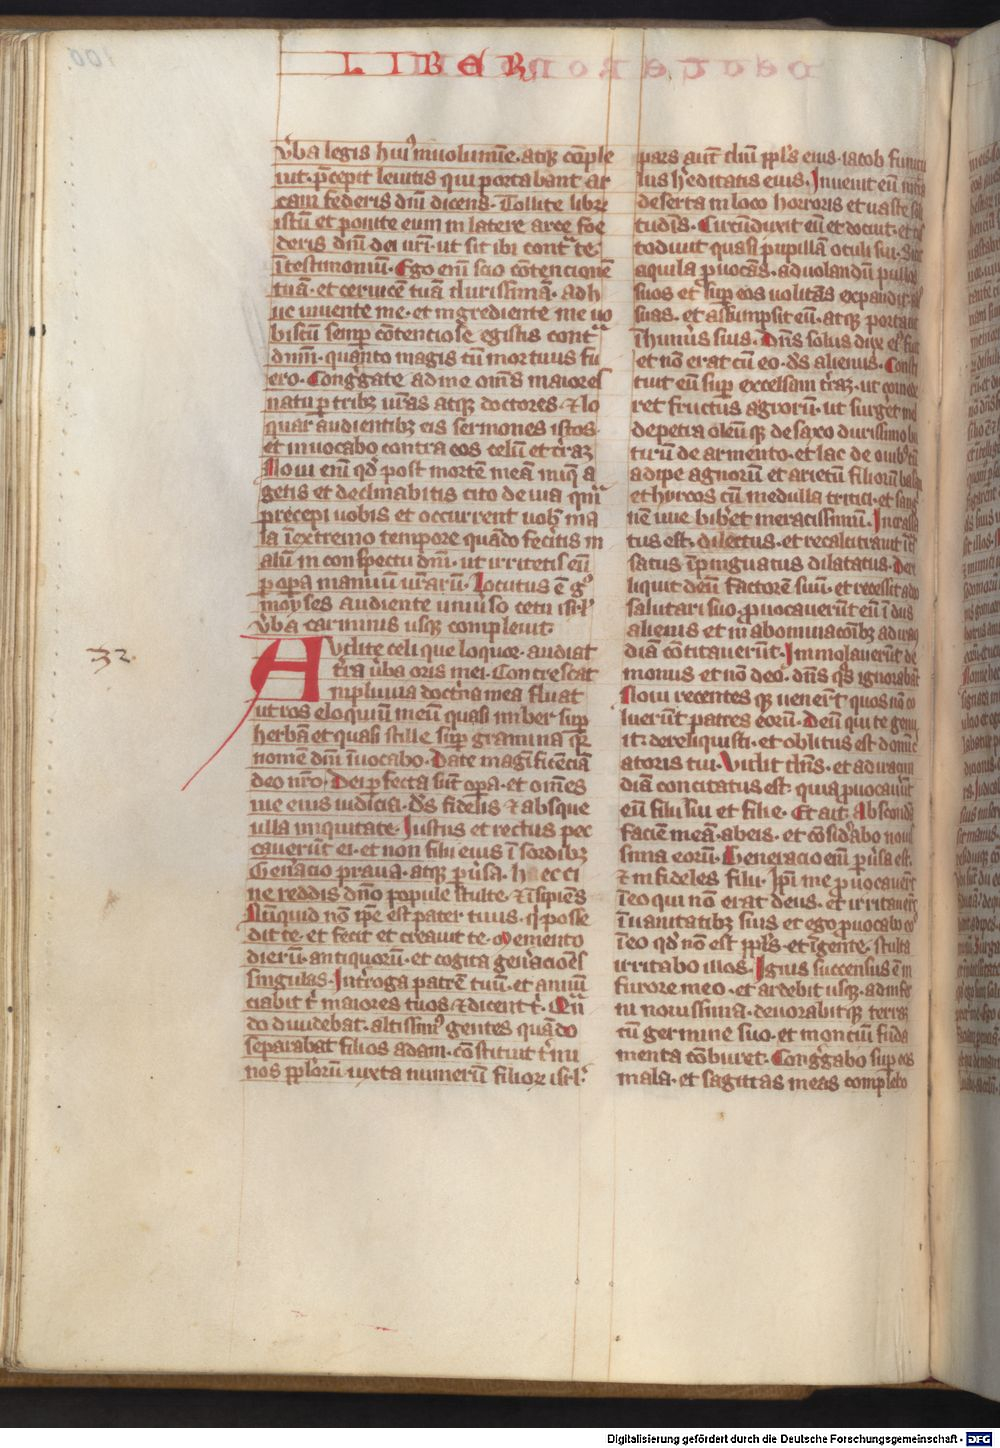 LIBER
v̾ba legis hui᷒ inuolumīe · atqꝫ cōple
uit · p̄cepit leuitis qui portabant ar
cam federis dn̄i dicens · Tollite librū
istū et ponite eum in latere arce foe
deris dn̄i dei urī · ut sit ibi cont̾ te ·
ī testimonium · Ego eni᷒ scio cōtencionē
tuā · et ceruicē tuā durissimā · adh
uc uiuente me · et ingrediente me uo
biscū semp̄ cōtenciose egistis cont̾
dnm̄ · quanto magis cū mortuus fu
ero · Cong̾gate ad me om̄s maiores
natu p tribꝫ ur̄as atqꝫ doctores · ⁊ lo
quar audientibꝫ eis sermones istos ·
et inuocabo contra eos celū et t̾rā
Noui eni᷒ qd̾ post mortē meā iniq̄ a
getis et declinabitis cito de uia quā
precepi uobis et occurrent uob̾ ma
la ī extremo tempore quādo fec̾itis m
alū in conspectu dn̄i · ut irritetis eū
p op̾a manuū ur̄arū · Locutus ē g̊
moyses audiente uniu̾so cetu isrl̾
v̾ba carminis usqꝫ compleuit ·
32
AUdite celi que loquor · audiat
t̾ra u̾ba oris mei · Concrescat
in pluuia doct̾na mea fluat
ut ros eloquiū meū quasi imber sup̄
herbā et quasi stille sup̄ gramina qꝛ
nomē dn̄i īuocabo · Date mag̾ificēciā
deo nr̄o · Dei p̾fecta sūt op̾a · et om̄es
uie eius iudicia · Ds̄ fidelis ⁊ absque
ulla iniquitate · Iustus et rectus pec
cauerūt ei · et non filii eius ī sordibꝫ
Gen̾acio praua · atqꝫ pu̾sa · haecci
ne reddis dn̄o popule stulte · ⁊ īsipiēs
Nūquid nō ip̄e est pater tuus · q̾ posse
dit te · et fecit et creauit te · Memento
dierū · antiquorū · et cogita gen̾acioēs
singulas · Int̾roga patrē tuū · et anūū
ciabit t̾ maiores tuos ⁊ dicent t̾ · Qn̄
do diuidebat · altissim᷒ gentes quādo
separabat filios adam · cōstituit t̾mi
nos pp̄lorū iuxta numerū filiorꝫ isrl̾ ·
pars aut̄ dn̄i pp̄ls eius · iacob funicu
lus h̾editatis eius · Inuenit eū in t̾ra
deserta in loco horroris et uaste soli
tudīs · Circūduxit eū et docuit · et cus
todiuit quasi pupillā oculi sui · Sicut
aquila p̾uocās · ad uolandū pullos
suos et sup̄ eos uolitās expandit alas
suas · et assūmpsit eū · atqꝫ portauit
ī hum̾is suis · Dn̄s solus dux ei᷒ fuit
et non erat cū eo · ds̄ alienus · Consti
tuit eū sup̄ excelsam t̾rā · ut comede
ret fructus agrorū · ut surg̾et mel
de petra oleūqꝫ de saxo durissimo bu
turū de armento · et lac de ouibꝫ cū
adipe agnorū et arietū filiorū basan
et hyrcos cū medulla tritici · et sang̾
nē uue bib̾et meracissimū · Incrassa
tus est · dilectus · et recalcitrauit īc̾s
satus īpinguatus dilatatus · Dere
liquit deū factorē suū · et recessit a deo
salutari suo · p̾uocauerūt eū ī diis
alienis et in abominacōibꝫ ad iracū
diā cōcitauerūt · Immolauerūt de
monus et nō deo · diis q̾s ignorabāt
Noui recentes qꝫ uener̄t · quos nō co
luerūt patres eorū · Deū qui te genu
it · dereliquisti · et oblitus est dominī c̾
atoris tui · Vidit dn̄s · et ad iracū
diā concitatus est · quia p̾uocauer̄t
eū filii sui et filie · Et ait · Abscondā
faciē meā · ab eis · et cōsid̾abo noui
sima eorū · Generacio eni᷒ pu̾sa est ·
⁊ infideles filii · Ip̄i me p̾uocauer̄t
ī eo qui nō erat deus · et irritauer̄t
ī uanitatibꝫ suis · et ego p̾uocabo eos
ī eo qd̾ nō est pp̄ls · et ī gente · stulta
irritabo illos · Ignis succensus ē in
furore meo · et ardebit usqꝫ · ad infe
ni nouissima · deuorabitqꝫ terrā
cū germine suo · et monciū fūda
menta cōburet · Cong̾gabo sup̄ eos
mala · et sagittas meas complebo
Digitalisierung gefördert durch die Deutsche Forschungsgemeinschaft - DFG